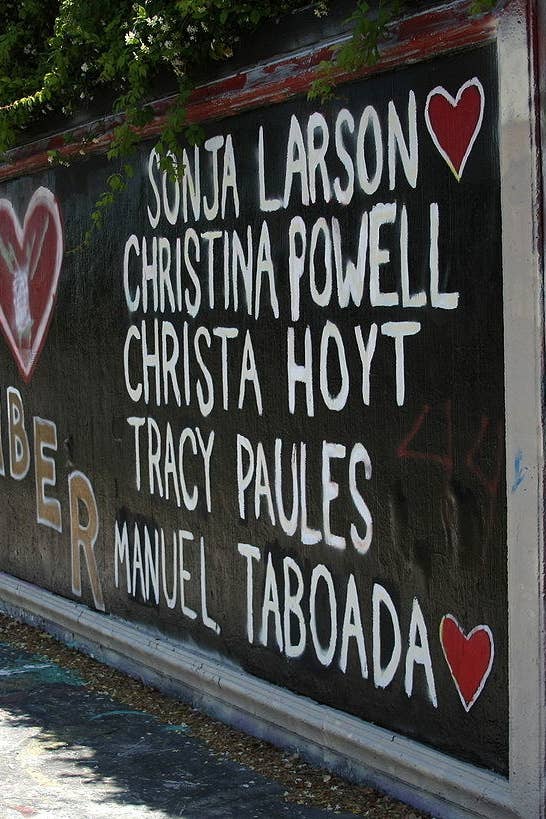 SONJA LARSON
CHRISTINA POWELL
CHRISTA HOYT
TRACY PAULES
MANUEL TABOADA
BER